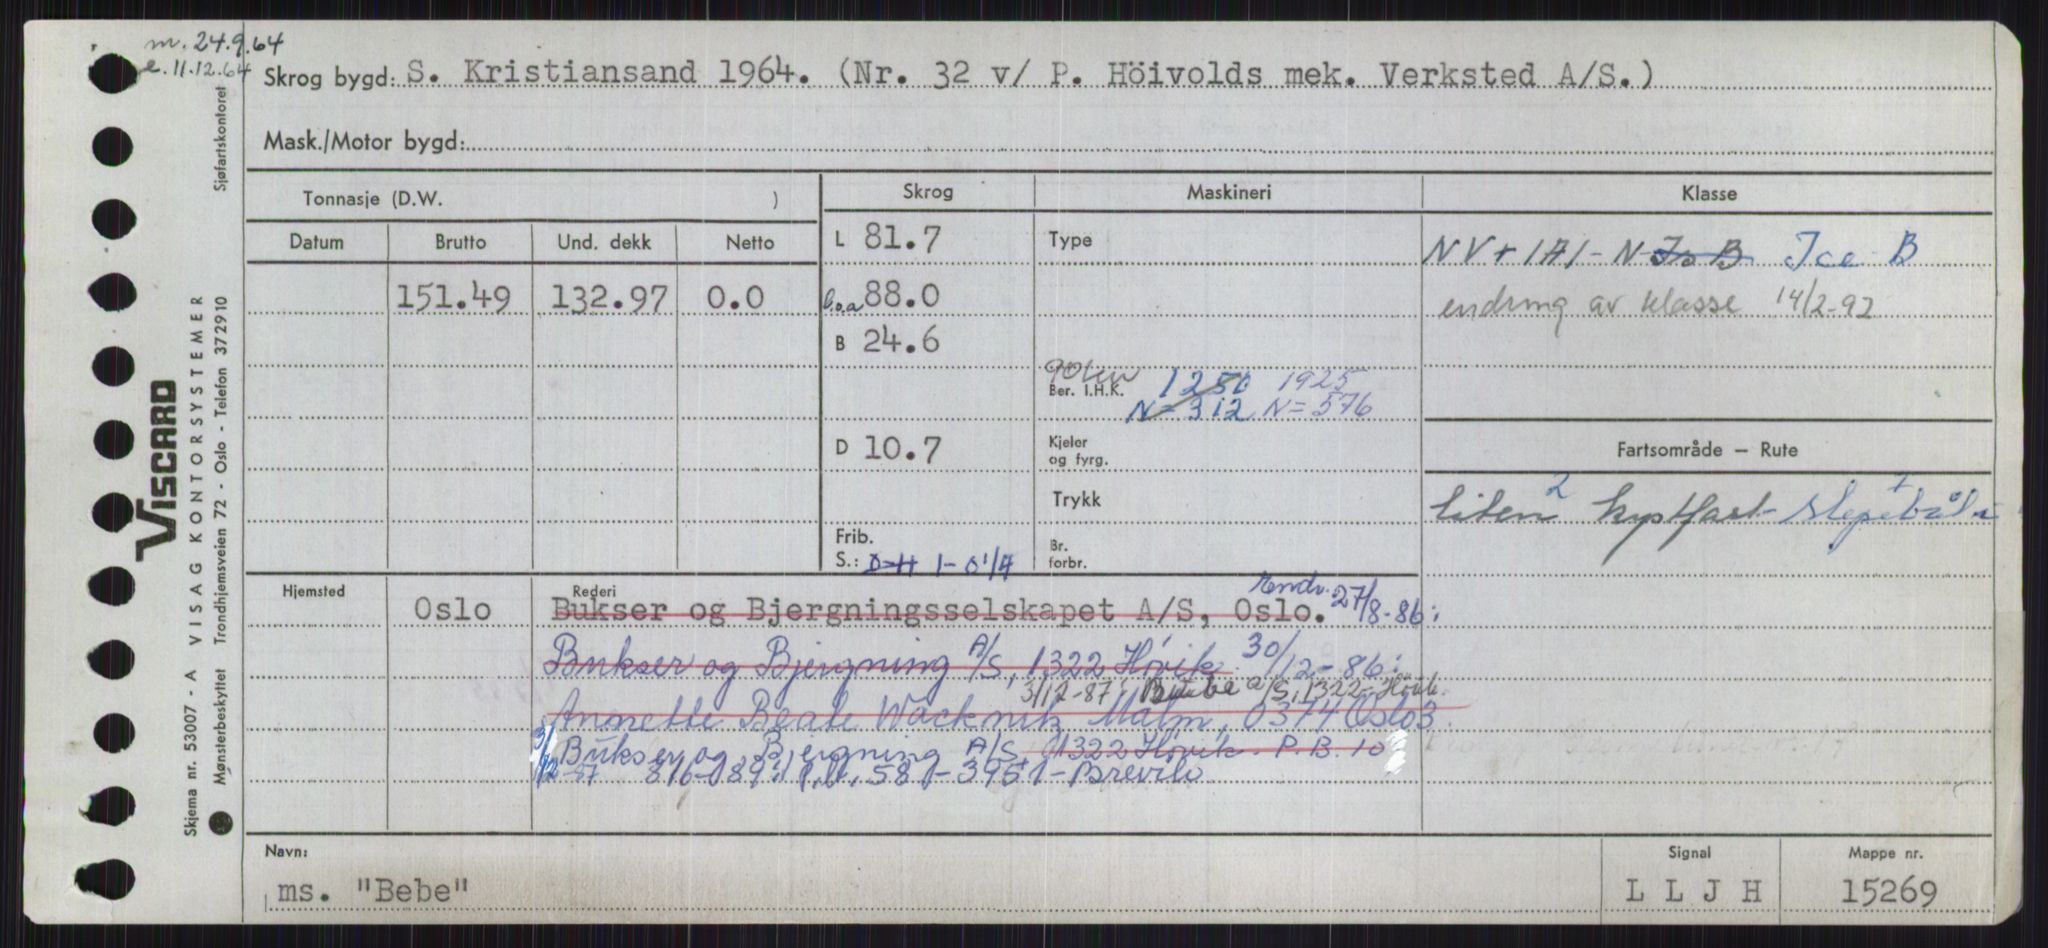 m. 24.9.64
e. 11.12.64
Skrog bygd: S. Kristiansand 1964. (Nr. 32 v/ P. Höivolds mek. Verksted A/S.)
Mask./Motor bygd:
Tonnasje (D.W. )
Skrog
Maskineri
Klasse
Datum Brutto Und. dekk Netto
L 81.7
Type
NV+1A1-N Is B Ice B
151.49 132.97 0.0
l.o.a 88.0
endring av klasse 14/2-92
B 24.6
Ber. I.H.K. 1250 1925
N=312 N=576
Fartsområde – Rute
D 10.7
Kjeler
og fyrg.
Trykk
liten 2 kystfart - slepebåt
Frib.
S.: D-H 1-0 1/4
Br.
forbr.
Hjemsted
Rederi
Oslo
Bukser og Bjergningsselskapet A/S, Oslo. endr. 27/8-86:
Bukser og Bjergning A/S, 1322 Høvik 30/12-86:
3/12-87 A/S, 1322 Høvik
Annette Beate Wacknik Malm, 0374 Oslo 3
3/12-87 Bukser og Bjergning A/S 1322 Høvik P.B. 10
Navn:
ms. "Bebe"
Signal
L L J H
Mappe nr.
15269
Sjøfartskontoret
VISCARD
Skjema nr. 53007 - A VISAG KONTORSYSTEMER
Mønsterbeskyttet Trondhjemsveien 72 - Oslo - Telefon 372910